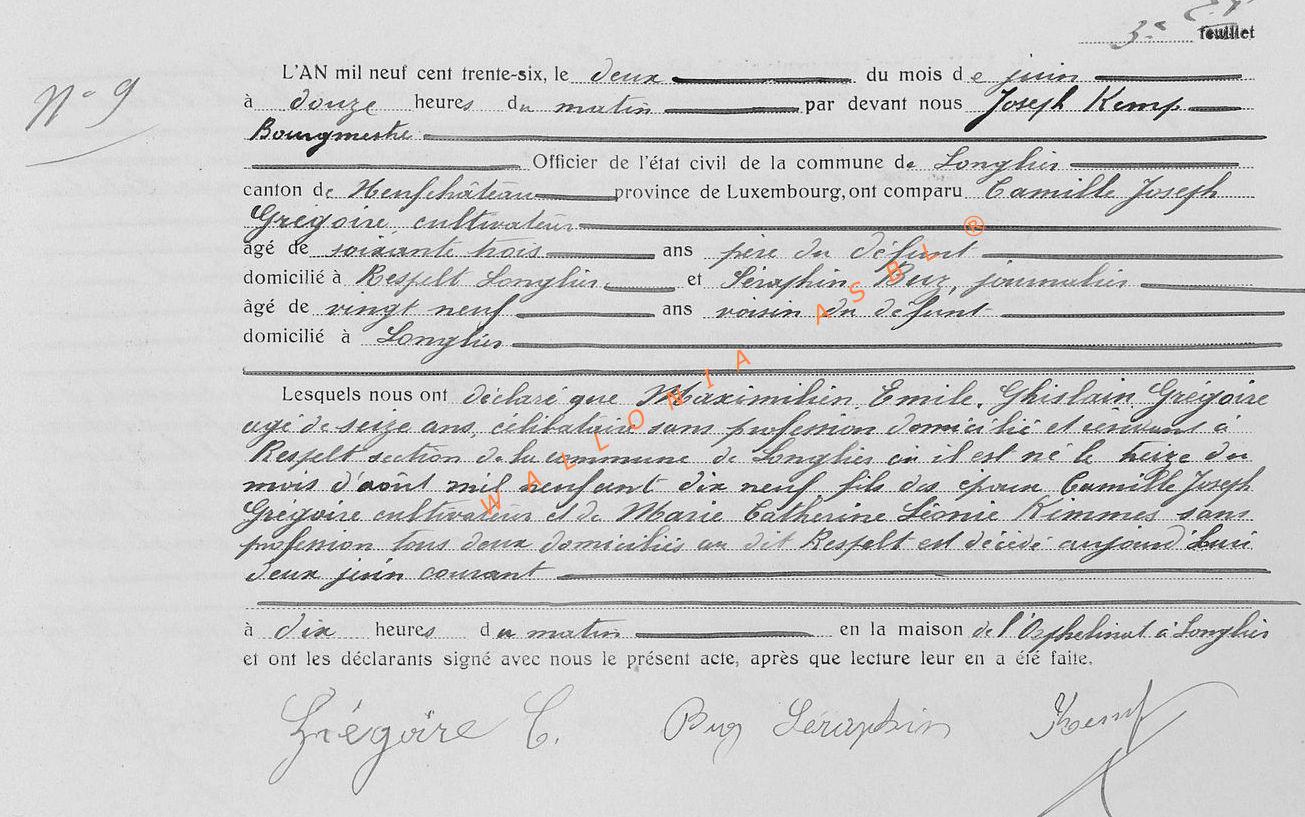 3e feuillet
N° 9
L'AN mil neuf cent trente-six, le deux du mois de juin
à douze heures du matin par devant nous Joseph Kemp
Bourgmestre
Officier de l'état civil de la commune de Longlier
canton de Neufchâteau province de Luxembourg, ont comparu Camille Joseph
Grégoire cultivateur
âgé de soixante trois ans père du défunt
domicilié à Respelt Longlier et Séraphin journalier
âgé de vingt neuf ans voisin du défunt
domicilié à Longlier
Lesquels nous ont déclaré que Maximilien Emile Ghislain Grégoire
agé de seize ans, célibataire sans profession domicilié et à
Respelt section de la commune de Longlier où il est né le treize du
mois d'août mil neuf cent dix neuf, fils des époux Camille Joseph
Grégoire cultivateur et de Marie Catherine Léonie Kimmes sans
profession tous deux domiciliés au dit Respelt est décédé aujourd'hui
deux juin courant
à dix heures du matin en la maison de l'Orphelinat à Longlier
et ont les déclarants signé avec nous le présent acte, après que lecture leur en a été faite.
Grégoire C. Séraphin Kemp
WALLONIA ASBL ®